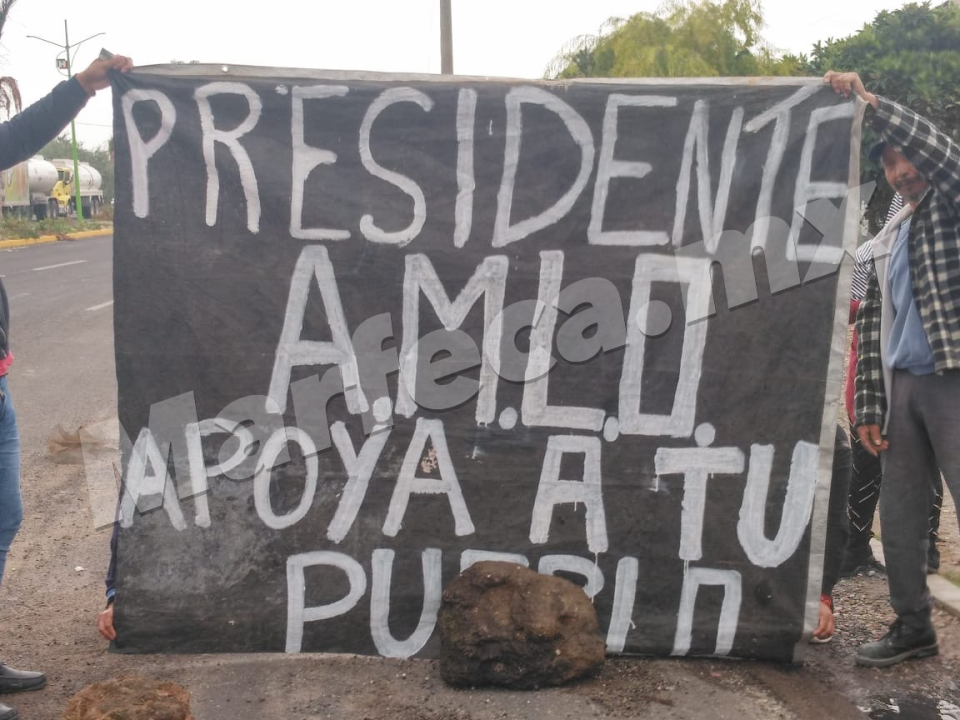 PRESIDENTE
A.M.L.O.
APOYA A TU
PUEBLO
Marfeca.mx